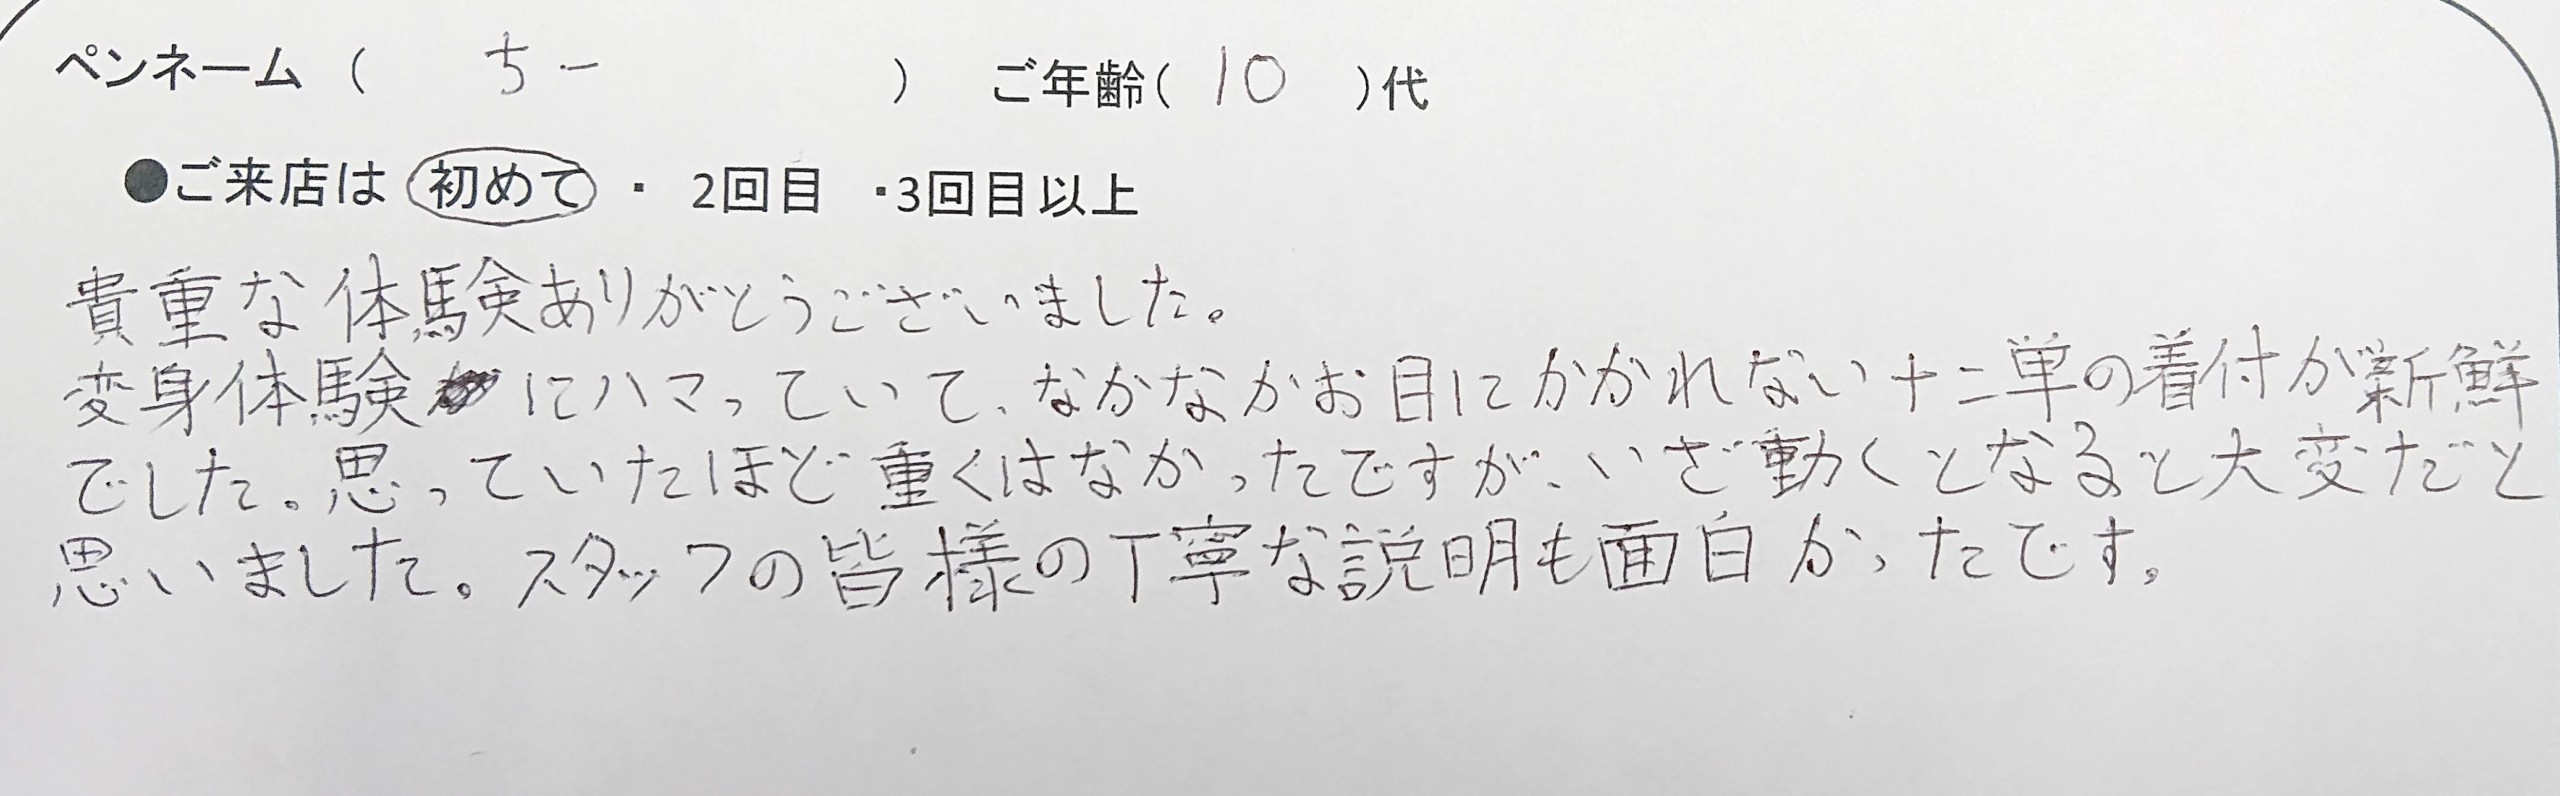 ペンネーム（ ちー ） ご年齢（ 10 ）代
●ご来店は 初めて ・ 2回目 ・3回目以上
貴重な体験ありがとうございました。
変身体験にハマっていて、なかなかお目にかかれない十二単の着付が新鮮
でした。思っていたほど重くはなかったですが、いざ動くとなると大変だと
思いました。スタッフの皆様の丁寧な説明も面白かったです。